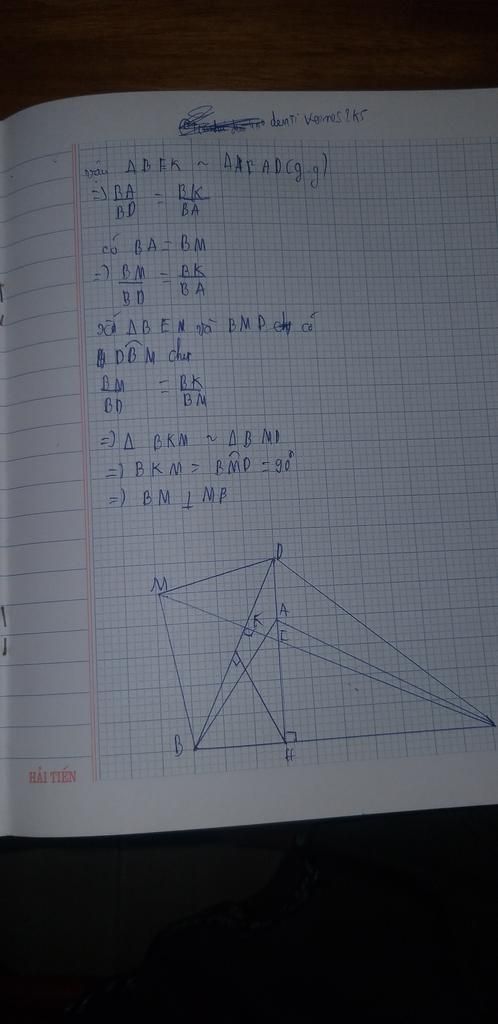 denti Vermes 2k5
Δ B E K ~ Δ A E A D (g.g)
=) BA/BD = BK/BA
có BA = BM
=) BM/BD = BK/BA
xét Δ B E M và B M D có
D B̂ M chu
BM/BD = BK/BM
=) Δ BKM ~ Δ BMD
=) BKM = BM̂D = 90°
=) BM ⊥ MB
D
M
A
K
E
B
H
HẢI TIẾN